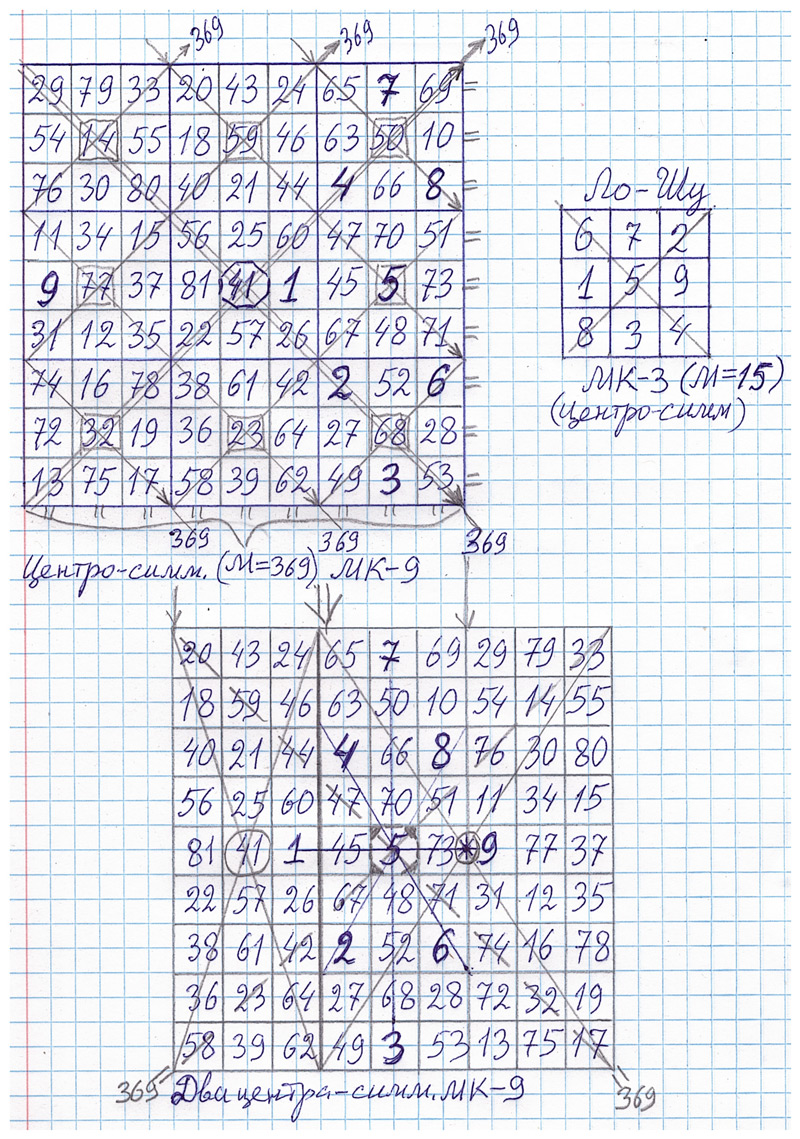 369 369 369
29 79 33 20 43 24 65 7 69 =
54 14 55 18 59 46 63 50 10 =
76 30 80 40 21 44 4 66 8 =
11 34 15 56 25 60 47 70 51 =
9 77 37 81 41 1 45 5 73 =
31 12 35 22 57 26 67 48 71 =
74 16 78 38 61 42 2 52 6 =
72 32 19 36 23 64 27 68 28 =
13 75 17 58 39 62 49 3 53 =
369 369 369
Центро-симм. (М=369) МК-9
Ло-Шу
6 7 2
1 5 9
8 3 4
МК-3 (М=15)
(центро-симм)
20 43 24 65 7 69 29 79 33
18 59 46 63 50 10 54 14 55
40 21 44 4 66 8 76 30 80
56 25 60 47 70 51 11 34 15
81 41 1 45 5 73 9 77 37
22 57 26 67 48 71 31 12 35
38 61 42 2 52 6 74 16 78
36 23 64 27 68 28 72 32 19
58 39 62 49 3 53 13 75 17
369 Двацентра-симм. МК-9 369